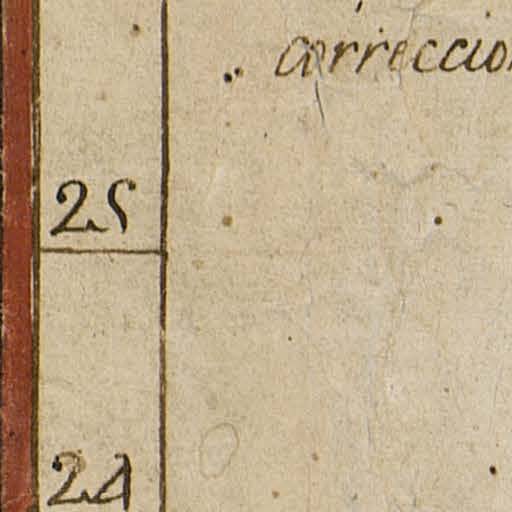 correccio
25
24